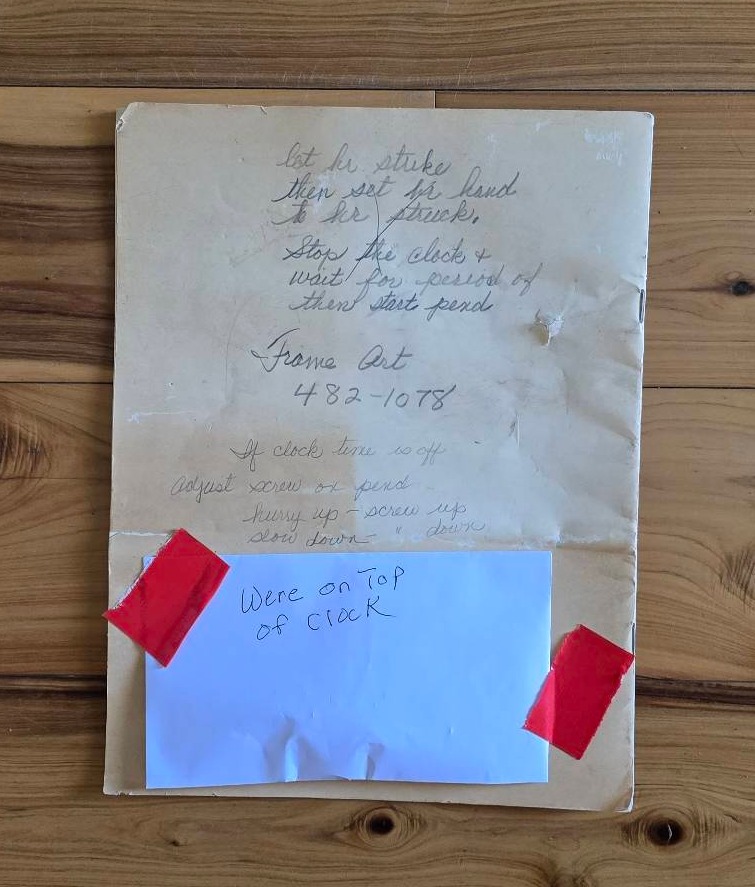 let hr strike
then set hr hand
to hr struck.
Stop the clock +
wait for period of
then start pend
Frame Art
482-1078
If clock time is off
Adjust screw on pend
hurry up - screw up
slow down - " down
Were on Top
of Clock